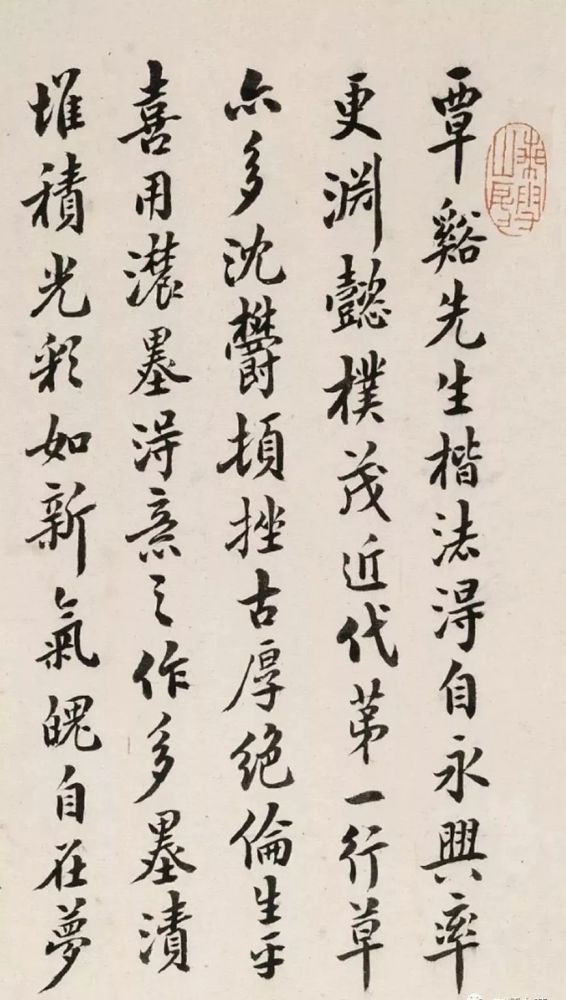 覃谿先生楷法淂自永興率
更淵懿樸茂近代苐一行草
亦多沈欝頓挫古厚絶倫生平
喜用濃墨淂意之作多墨漬
堆積光彩如新氣魄自在夢